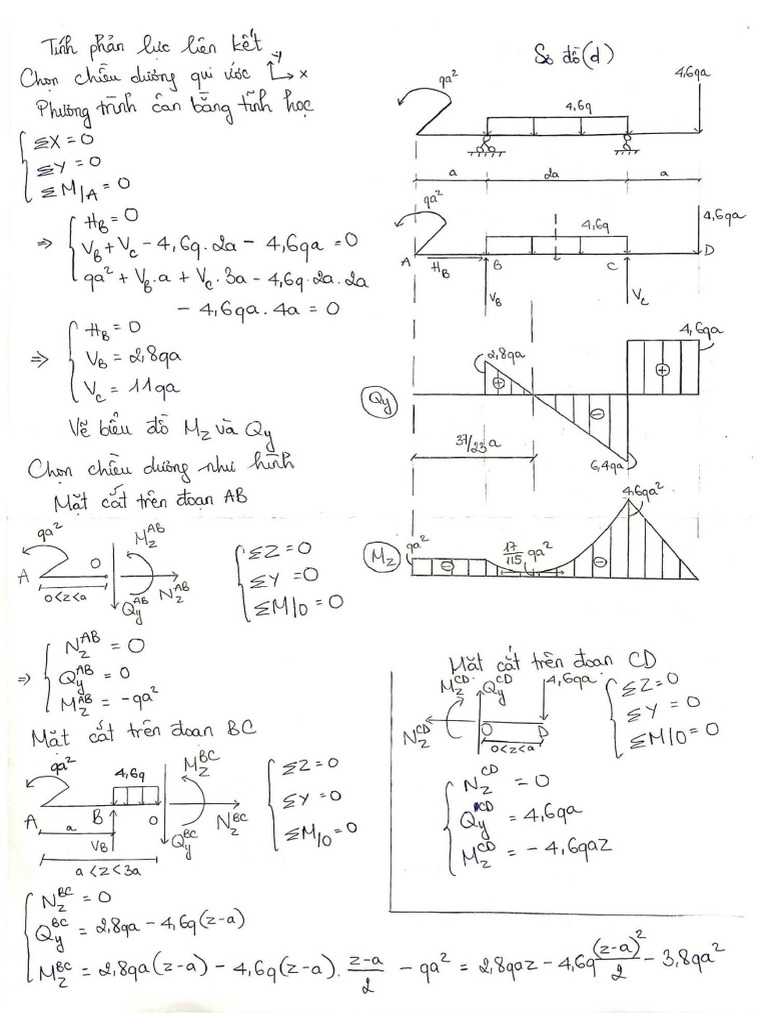 Tính phản lực liên kết
Chọn chiều dương qui ước y x
Phương trình cân bằng tĩnh học
ΣX = 0
ΣY = 0
ΣM/A = 0
⇒ H_B = 0
V_B + V_C - 4,6q.2a - 4,6qa = 0
qa² + V_B.a + V_C.3a - 4,6q.2a.2a
- 4,6qa.4a = 0
⇒ H_B = 0
V_B = 2,8qa
V_C = 11qa
Vẽ biểu đồ M_z và Q_y
Chọn chiều dương như hình
Mặt cắt trên đoạn AB
qa² A O M_z^AB N_z^AB Q_y^AB
0<z<a
ΣZ = 0
ΣY = 0
ΣM/O = 0
⇒ N_z^AB = 0
Q_y^AB = 0
M_z^AB = -qa²
Mặt cắt trên đoạn BC
qa² 4,6q M_z^BC
A B O N_z^BC
a V_B Q_y^BC
a<z<3a
ΣZ = 0
ΣY = 0
ΣM/O = 0
N_z^BC = 0
Q_y^BC = 2,8qa - 4,6q(z-a)
M_z^BC = 2,8qa(z-a) - 4,6q(z-a).(z-a)/2 - qa² = 2,8qaz - 4,6q(z-a)²/2 - 3,8qa²
Sơ đồ (d)
qa² 4,6q 4,6qa
a 2a a
qa² 4,6q 4,6qa
A H_B B C D
V_B V_C
2,8qa 4,6qa
Q_y ⊕ ⊖ ⊕
37/23 a
6,4qa
4,6qa²
M_z qa² 17/115 qa²
⊖ ⊖
Mặt cắt trên đoạn CD
M_z^CD Q_y^CD 4,6qa
N_z^CD O D
0<z<a
ΣZ = 0
ΣY = 0
ΣM/O = 0
N_z^CD = 0
Q_y^CD = 4,6qa
M_z^CD = -4,6qaz